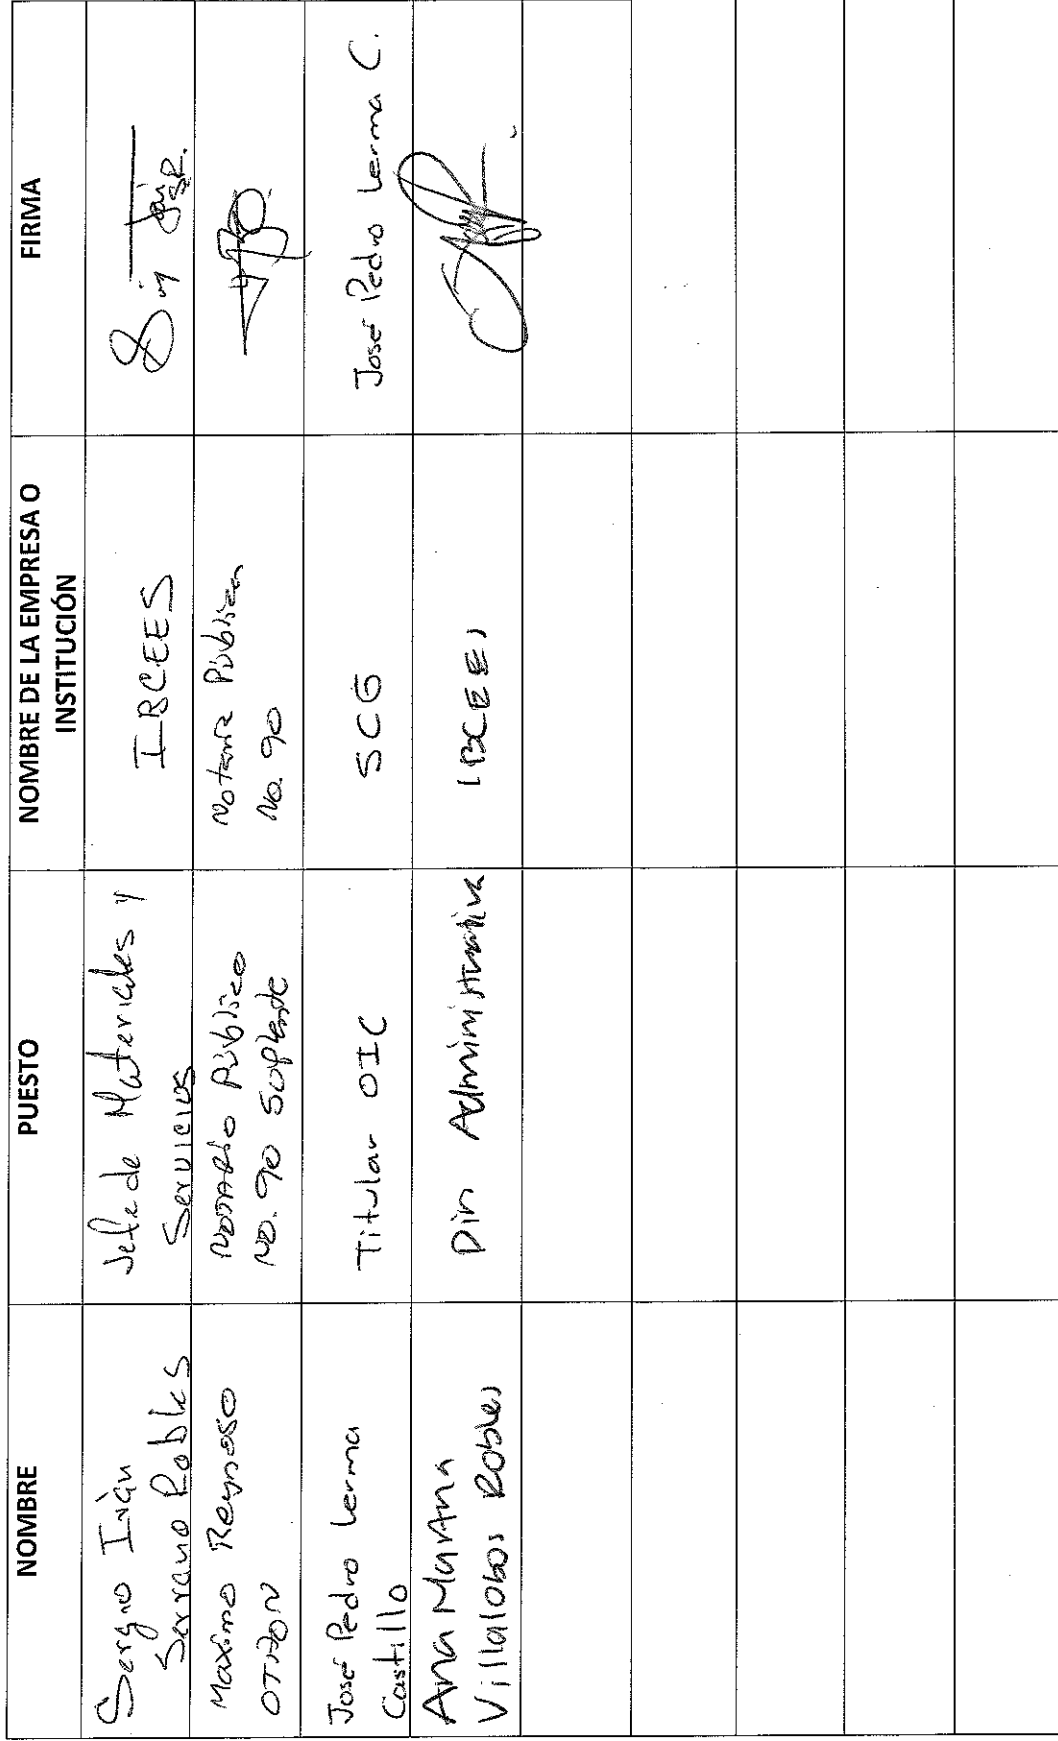 NOMBRE
PUESTO
NOMBRE DE LA EMPRESA O
INSTITUCIÓN
FIRMA
Sergio Iván
Serrano Robles
Jefe de Materiales y
Servicios
IBCEES
Maximo Reynoso
OTHON
Notario Público
No. 90 Suplente
Notaria Pública
No. 90
José Pedro Lerma
Castillo
Titular OIC
SCG
José Pedro Lerma C.
Ana Mariana
Villalobos Robles
Dirn Administrativa
IBCEES